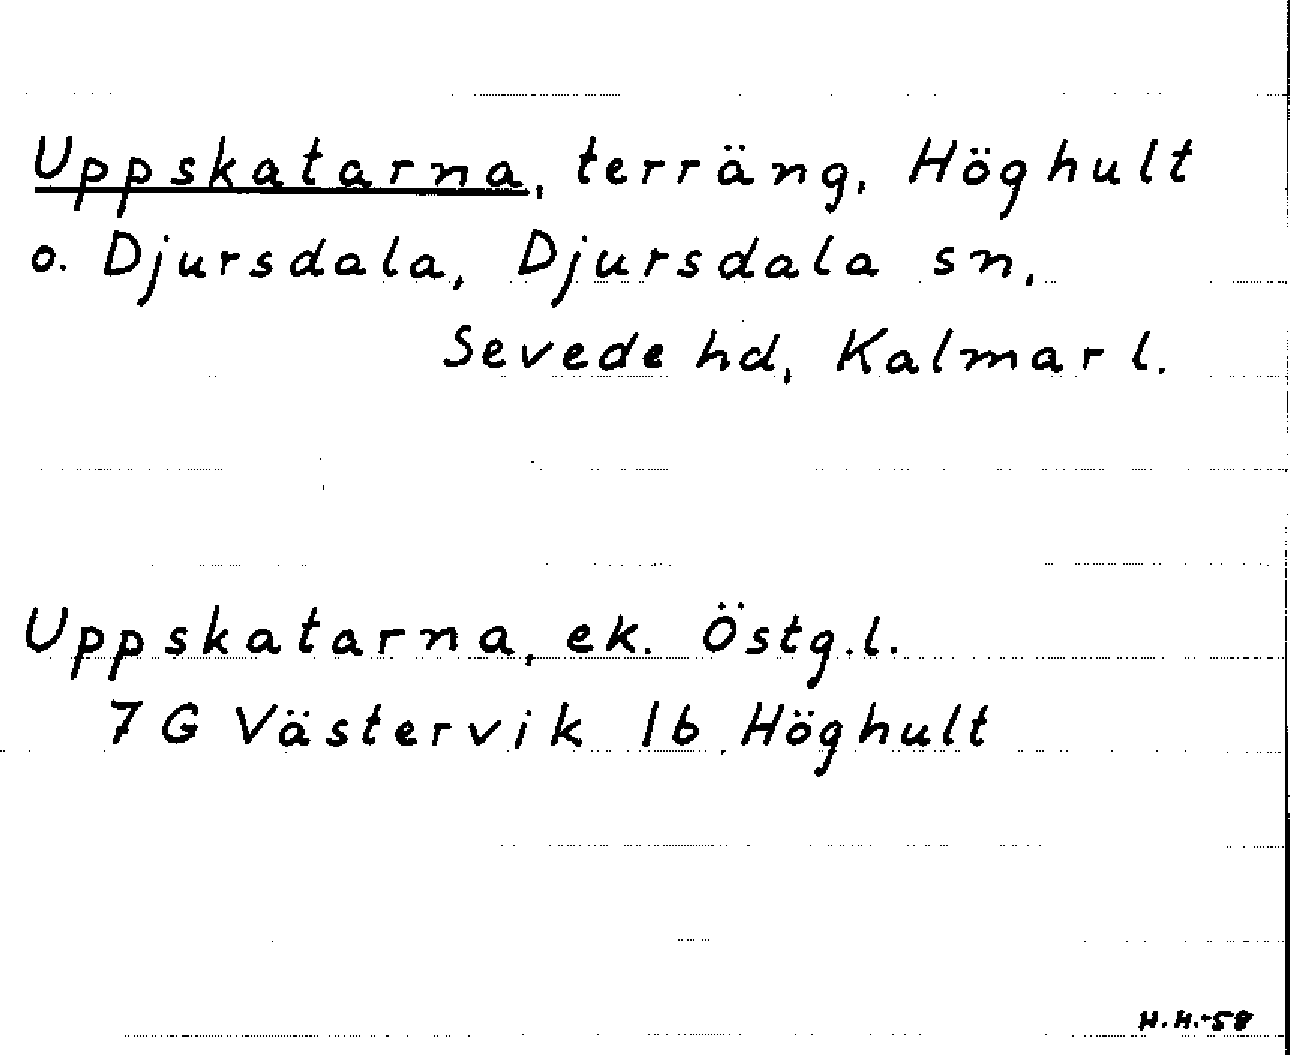 Uppskatarna, terräng, Höghult
o. Djursdala, Djursdala sn,
Sevede hd, Kalmar l.
Uppskatarna, ek. Östg.l.
7 G Västervik 1b Höghult
H.H.-58